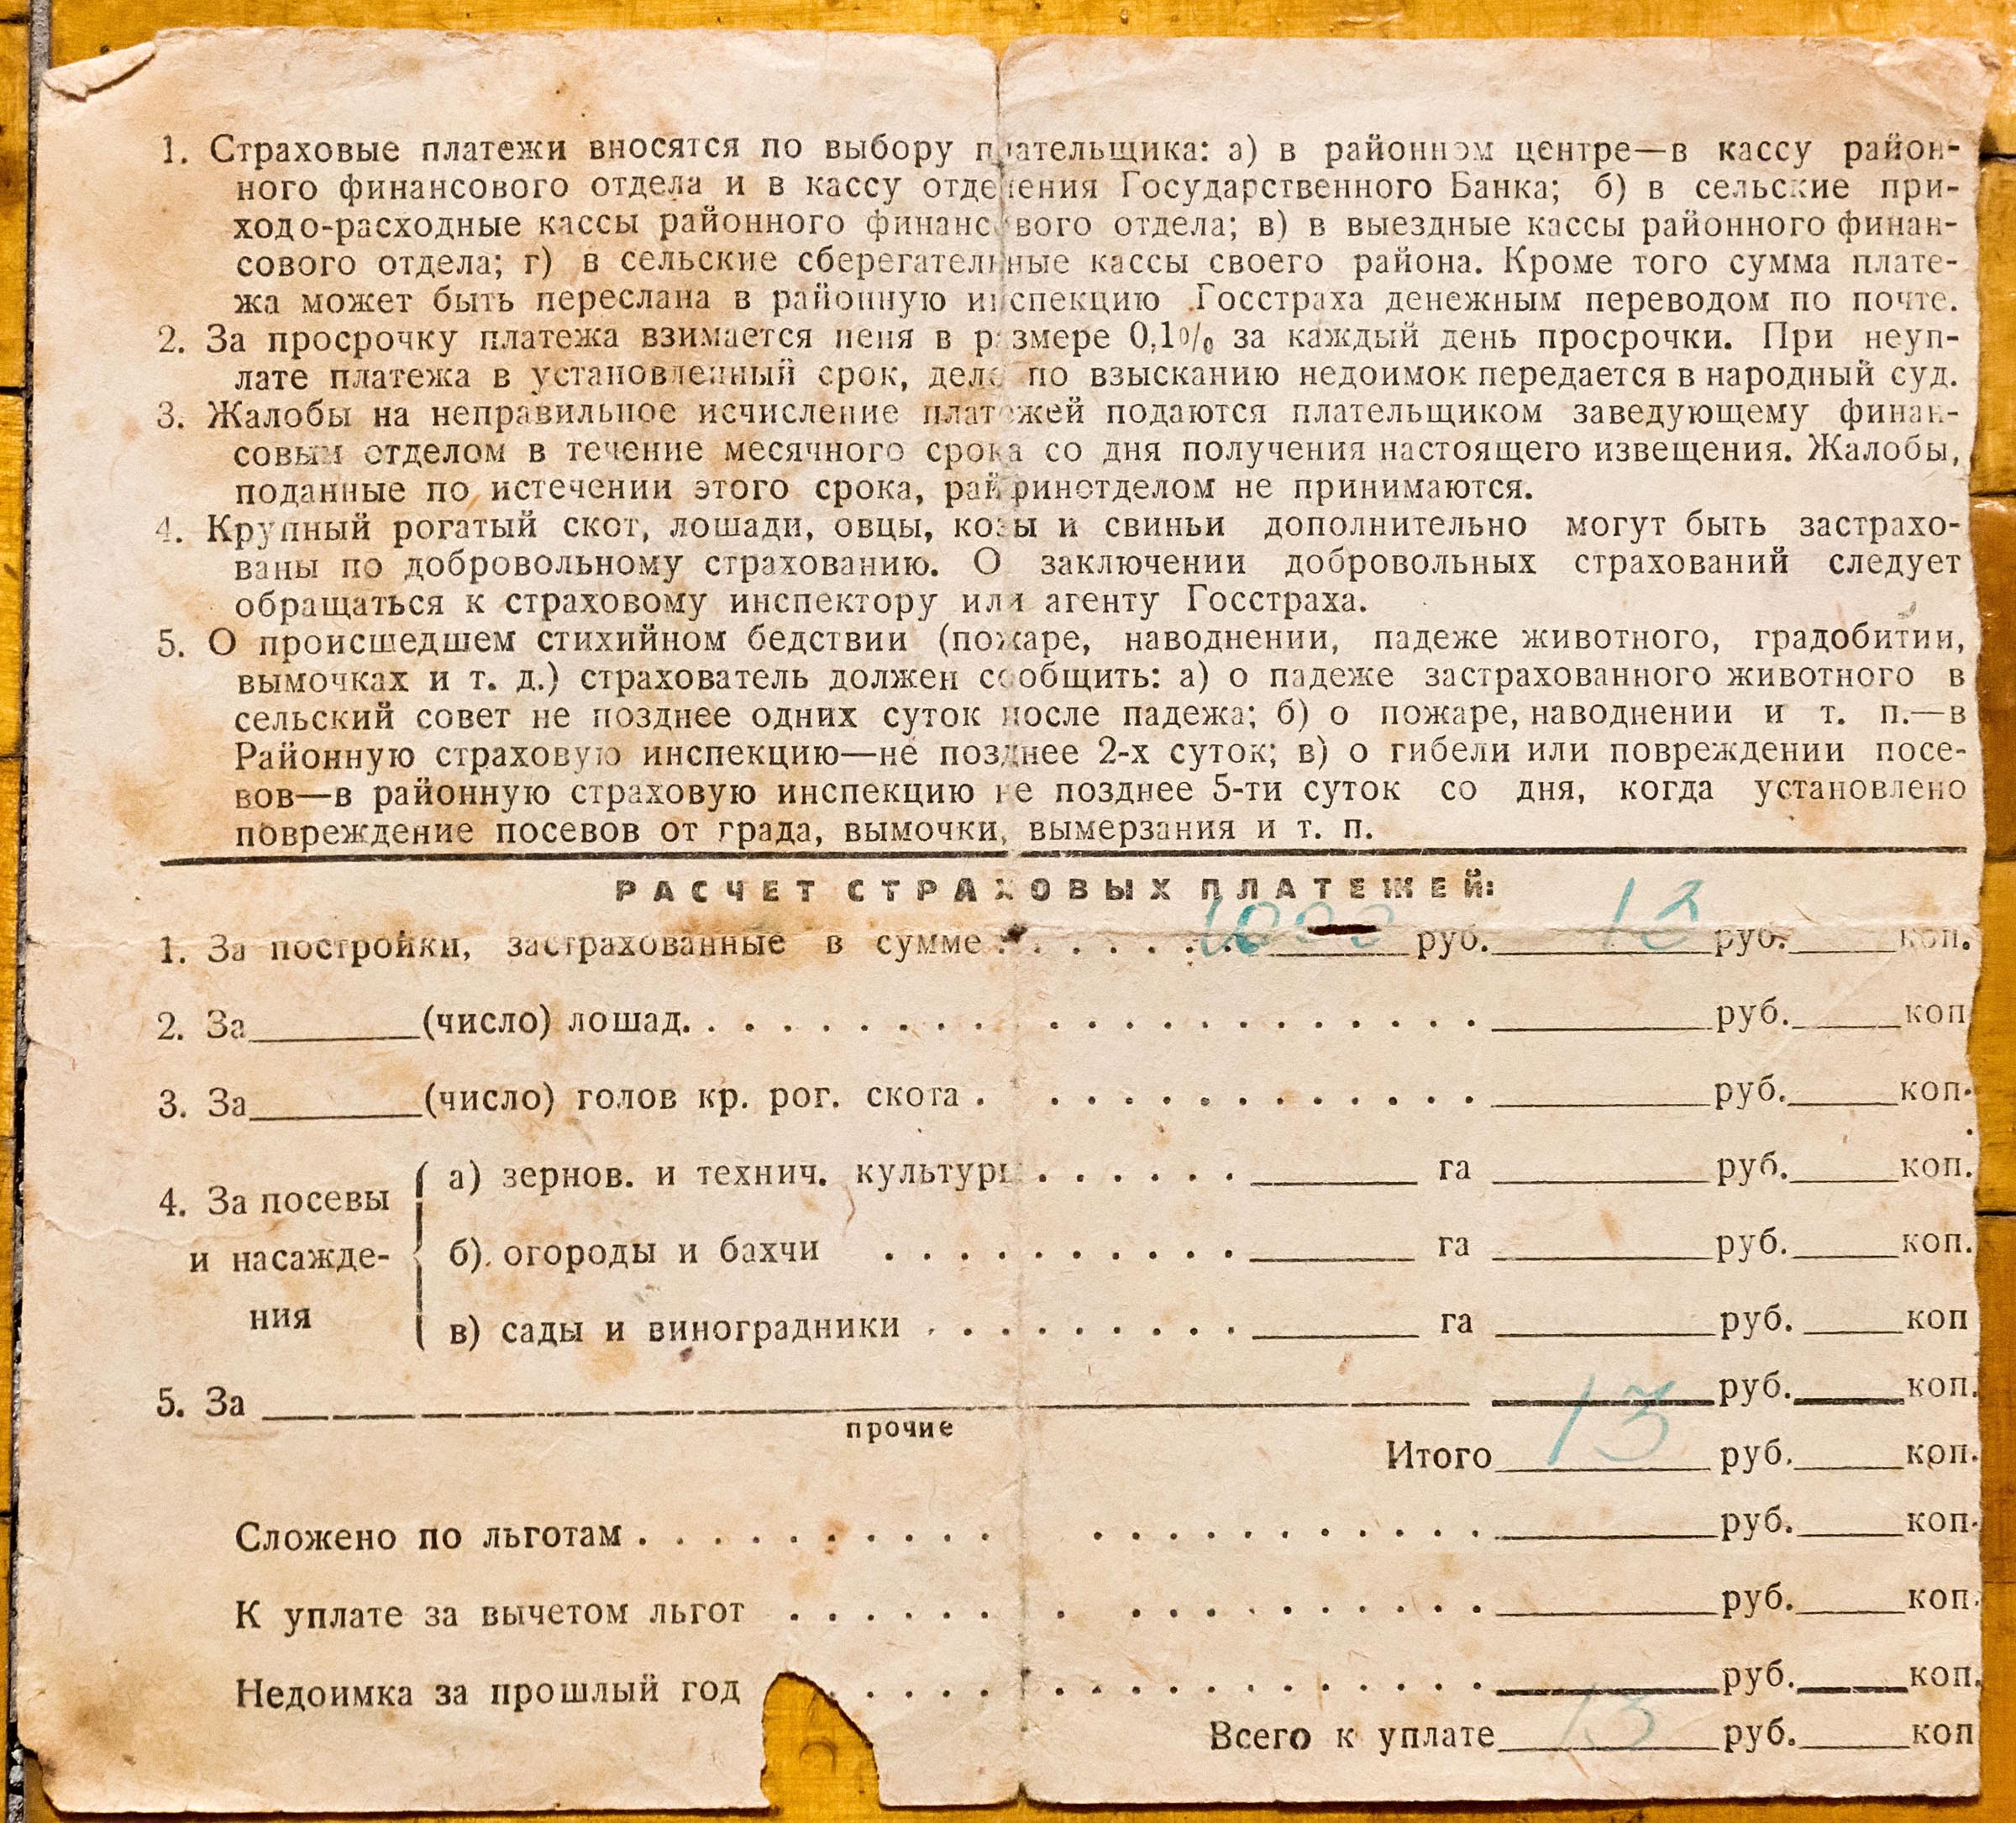 1. Страховые платежи вносятся по выбору плательщика: а) в районном центре—в кассу район-
ного финансового отдела и в кассу отделения Государственного Банка; б) в сельские при-
ходо-расходные кассы районного финансового отдела; в) в выездные кассы районного финан-
сового отдела; г) в сельские сберегательные кассы своего района. Кроме того сумма плате-
жа может быть переслана в районную инспекцию Госстраха денежным переводом по почте.
2. За просрочку платежа взимается пеня в размере 0,1% за каждый день просрочки. При неуп-
лате платежа в установленный срок, дело по взысканию недоимок передается в народный суд.
3. Жалобы на неправильное исчисление платежей подаются плательщиком заведующему финан-
совым отделом в течение месячного срока со дня получения настоящего извещения. Жалобы,
поданные по истечении этого срока, райфинотделом не принимаются.
4. Крупный рогатый скот, лошади, овцы, козы и свиньи дополнительно могут быть застрахо-
ваны по добровольному страхованию. О заключении добровольных страхований следует
обращаться к страховому инспектору или агенту Госстраха.
5. О происшедшем стихийном бедствии (пожаре, наводнении, падеже животного, градобитии,
вымочках и т. д.) страхователь должен сообщить: а) о падеже застрахованного животного в
сельский совет не позднее одних суток после падежа; б) о пожаре, наводнении и т. п.—в
Районную страховую инспекцию—не позднее 2-х суток; в) о гибели или повреждении посе-
вов—в районную страховую инспекцию не позднее 5-ти суток со дня, когда установлено
повреждение посевов от града, вымочки, вымерзания и т. п.
РАСЧЕТ СТРАХОВЫХ ПЛАТЕЖЕЙ:
1. За постройки, застрахованные в сумме . . . . . . 1000 руб. 13 руб. коп.
2. За (число) лошад. . . . . . . . . . . . . . . . . . . . руб. коп
3. За (число) голов кр. рог. скота . . . . . . . . . . . . руб. коп.
4. За посевы и насажде-ния
а) зернов. и технич. культуры . . . . . . га руб. коп.
б) огороды и бахчи . . . . . . . . . га руб. коп.
в) сады и виноградники . . . . . . . . . га руб. коп
5. За руб. коп.
прочие
Итого 13 руб. коп.
Сложено по льготам . . . . . . . . . . . . . . . . . . . руб. коп.
К уплате за вычетом льгот . . . . . . . . . . . . . . . . руб. коп.
Недоимка за прошлый год . . . . . . . . . . . . . . . руб. коп.
Всего к уплате 13 руб. коп